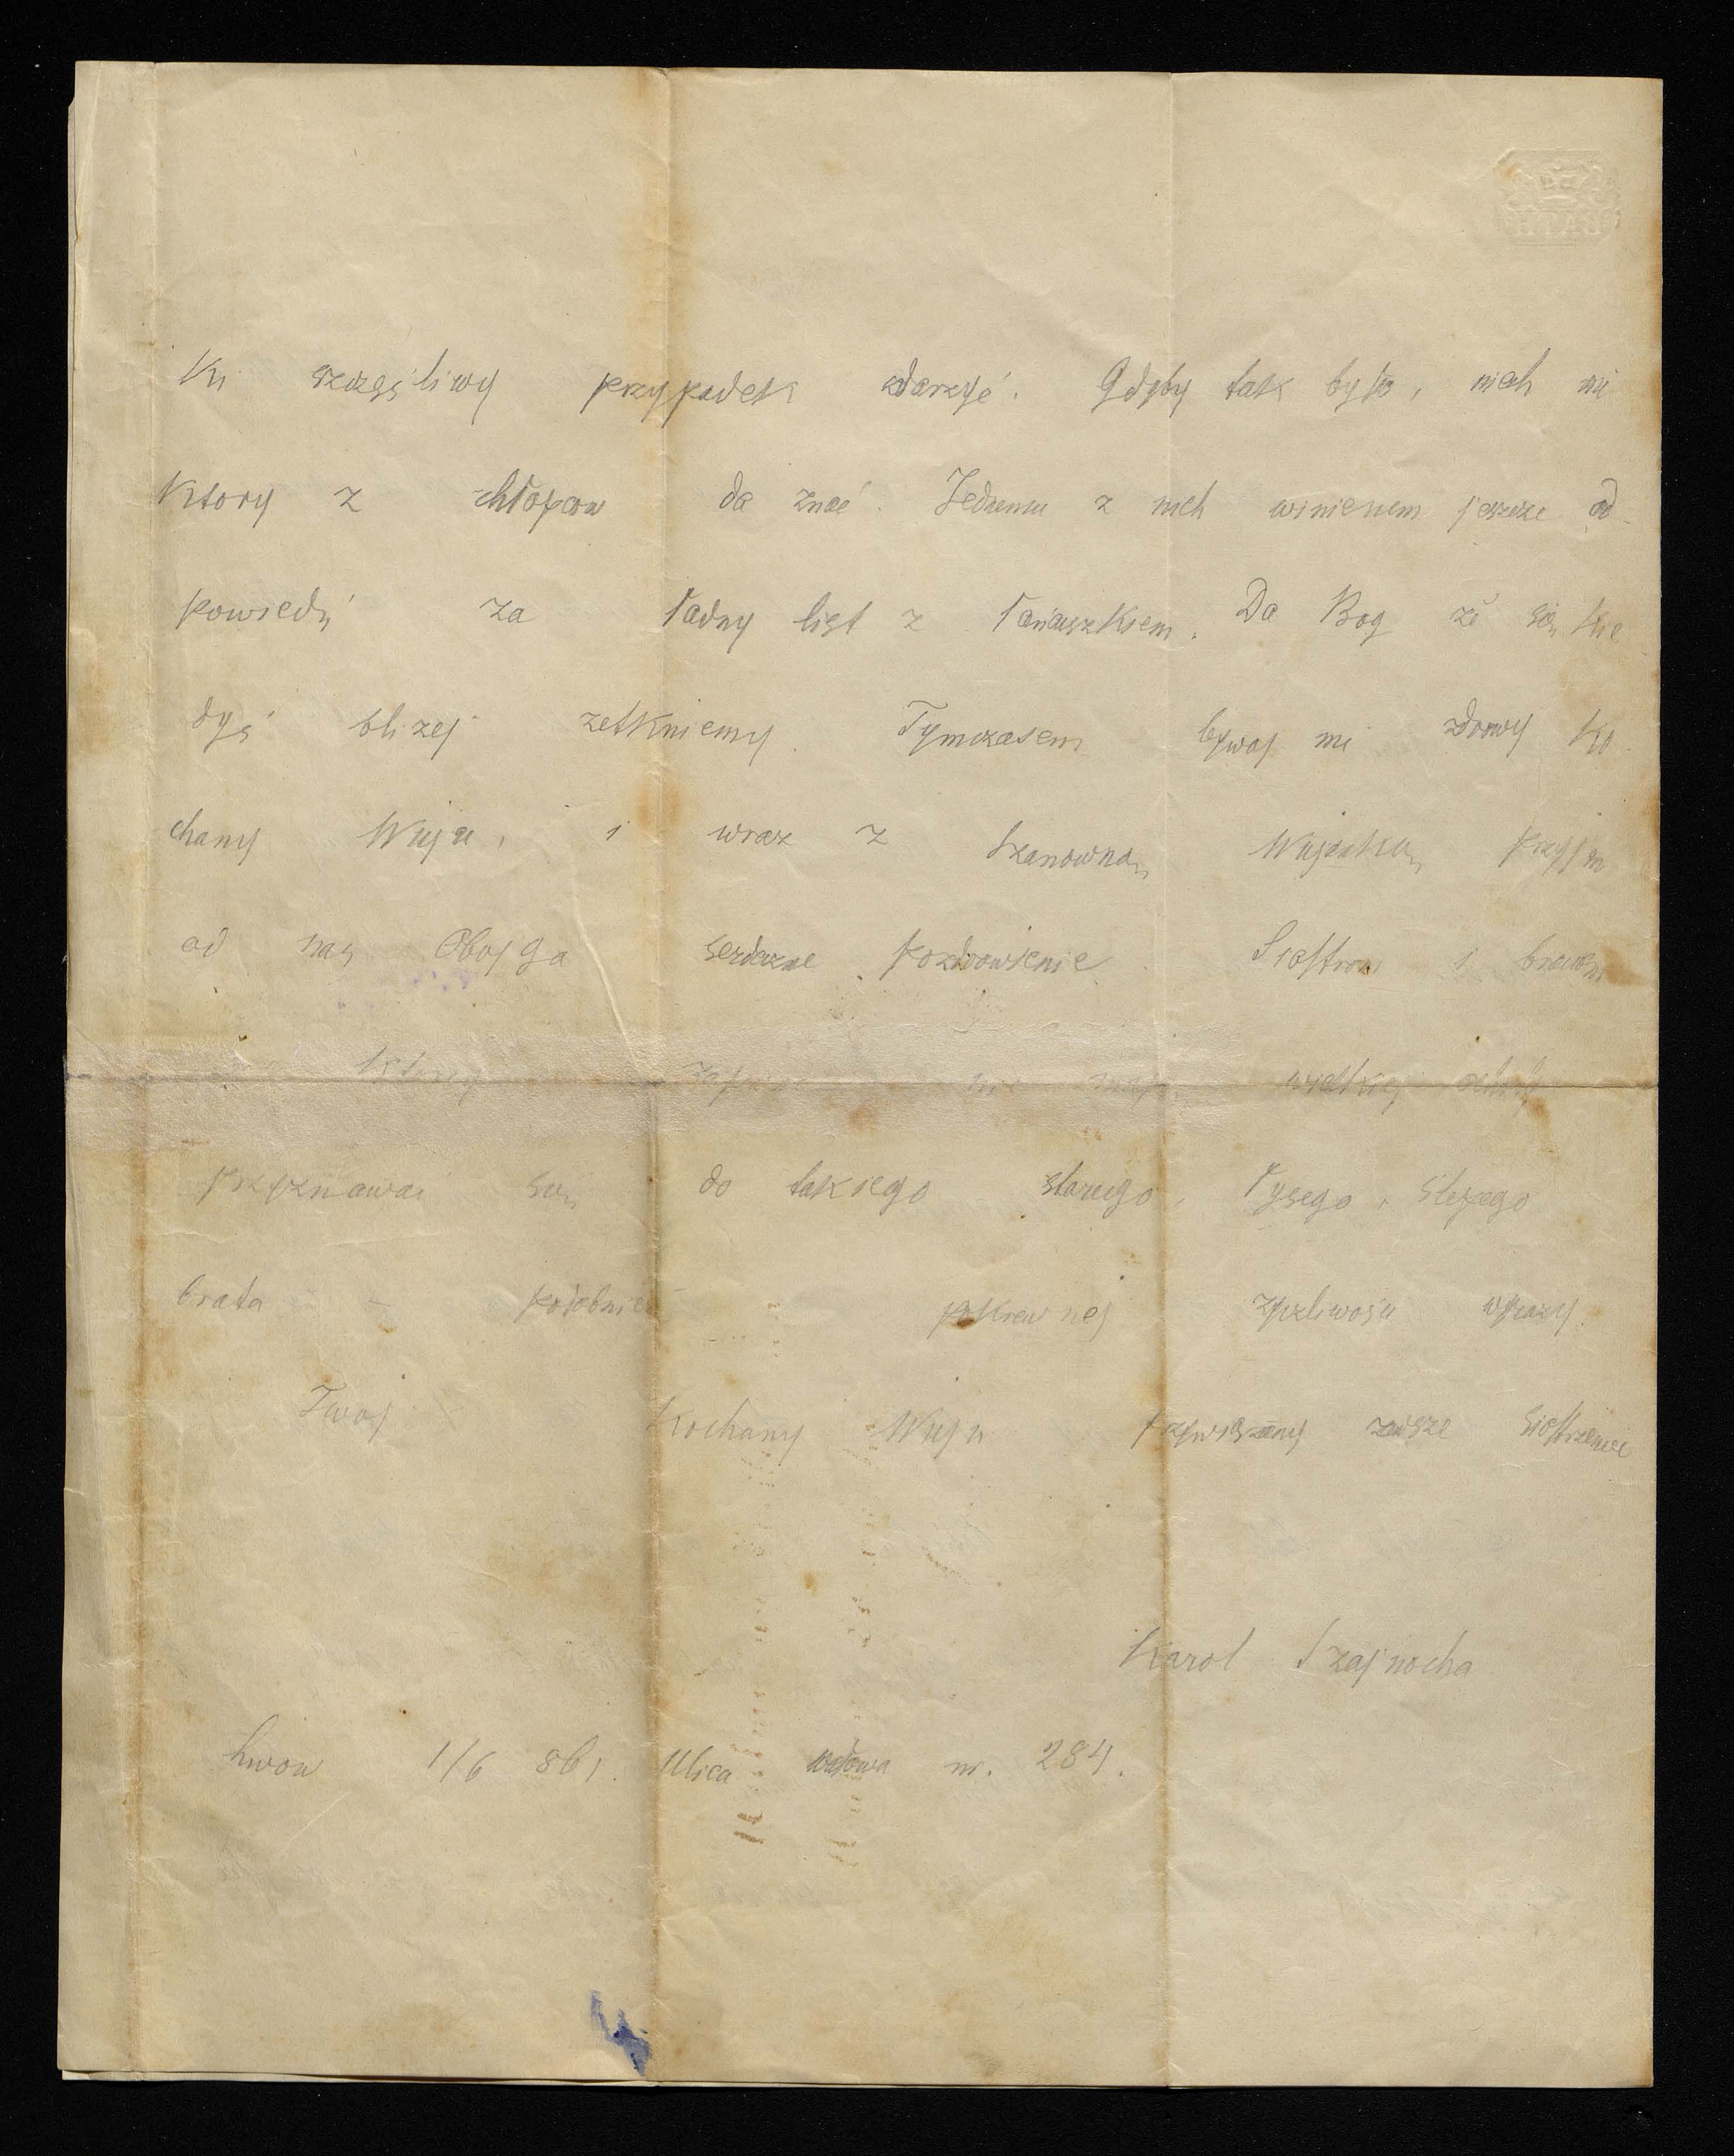 ki szczęśliwy przypadek zdarzyć. Gdyby tak było, niech mi
ktory z chłopcow da znać. Jednemu z nich winienem jeszcze od-
powiedź za ładny list z łańcuszkiem. Da Bog że się kie
dyś bliżej zetkniemy. Tymczasem bywaj mi zdrowy ko-
chany Wuju, i wraz z Szanowną Wujenką przyjm
od nas Obojga serdeczne pozdrowienie. Siostrom i braciom
którzy zapewne nie mają wielkiej ochoty
przyznawać się do takiego starego, łysego, slepego
brata - podobnież pokrewnej życzliwości wyrazy.
Twoj Kochany Wuju przywiązany zawsze siostrzeniec
Karol Szajnocha
Lwow 1/6 861. Ulica wałowa nr. 284.
4
BATH